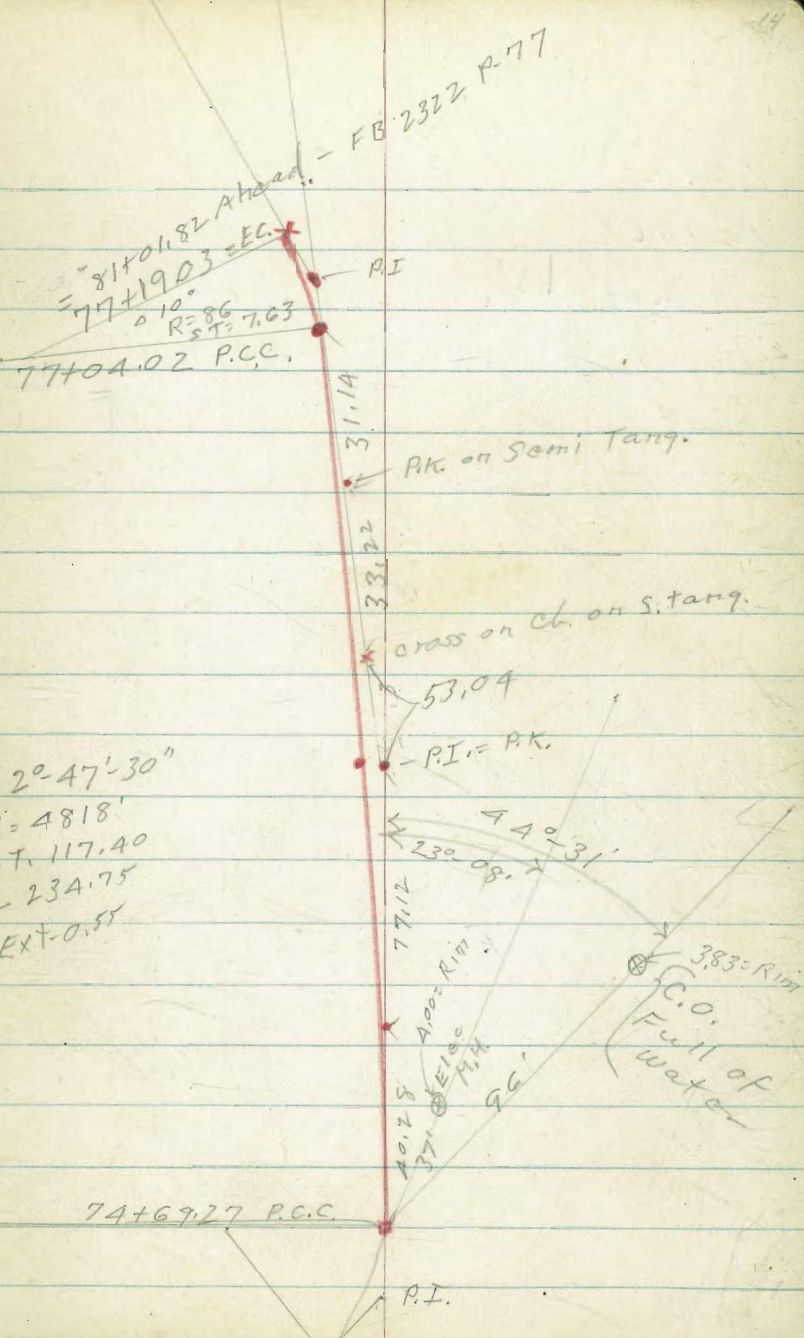 14
FB 2322 P-77
= 81+01.82 Ahead -
77+19.03 = E.C.
Δ 10°
R=86
ST=7.63
77+04.02 P.C.C.
P.I
31.14
P.K. on Semi Tang.
33.22
cross on Cb. on S. tang.
53.04
P.I. = P.K.
2°-47'-30"
= 4818'
T. 117.40
234.75
Ext-0.55
44°-31'
23°-08'
77.12
4.00 = Rim
Elec
M.H.
3.83 = Rim
C.O.
Full of
Water
96'
37'
40.28
74+69.27 P.C.C.
P.I.